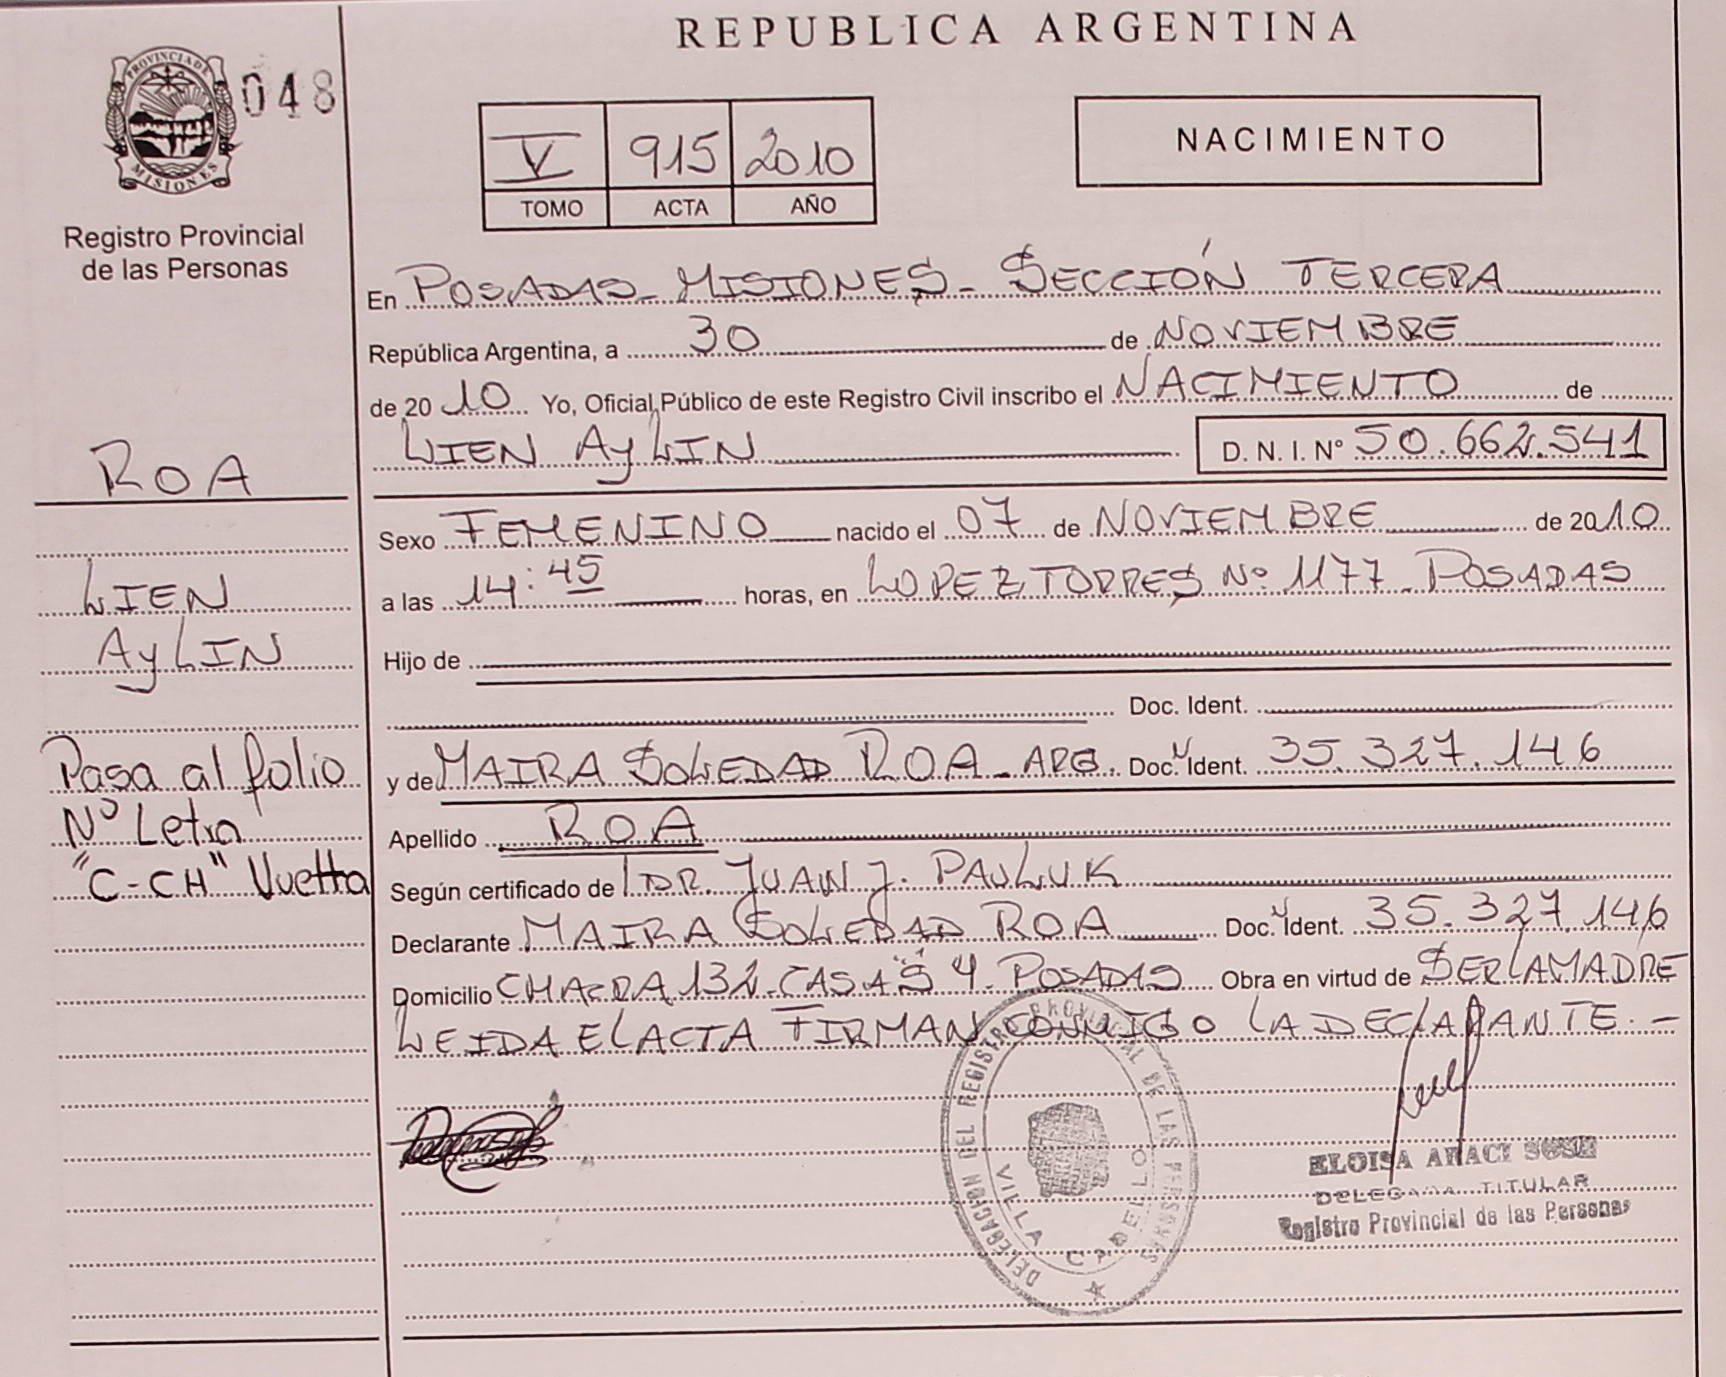 REPUBLICA ARGENTINA
PROVINCIA DE MISIONES
048
Registro Provincial
de las Personas
V 915 2010
TOMO ACTA AÑO
NACIMIENTO
En POSADAS - MISIONES - SECCIÓN TERCERA
República Argentina, a 30 de NOVIEMBRE
de 2010 Yo, Oficial Público de este Registro Civil inscribo el NACIMIENTO de
LIEN AyLIN D. N. I. Nº 50.662.541
Sexo FEMENINO nacido el 07 de NOVIEMBRE de 2010
a las 14:45 horas, en LOPEZ TORRES Nº 1177 - POSADAS
Hijo de
Doc. Ident.
y de MAIRA SOLEDAD ROA - ARG. Doc. Ident. 35.327.146
Apellido ROA
Según certificado de DR. JUAN J. PAULUK
Declarante MAIRA SOLEDAD ROA Doc. Ident. 35.327.146
Domicilio CHACRA 132 - CASA "S" 4 - POSADAS Obra en virtud de SER LA MADRE
LEIDA EL ACTA FIRMAN CONMIGO LA DECLARANTE. -
ROA
LIEN
AyLIN
Pasa al folio
Nº Letra
"C-CH" Vuelta
DELEGACION DEL REGISTRO PROVINCIAL DE LAS PERSONAS
VILLA CABELLO
ELOISA ARACI SOSA
DELEGADA TITULAR
Registro Provincial de las Personas